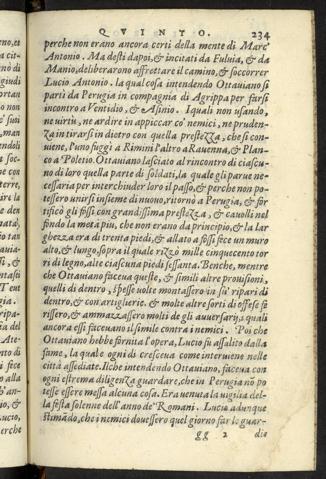 QVINTO. 234
perche non erano ancora certi della mente di Marc'
Antonio. Ma desti dapoi, & incitati da Fuluia, & da
Manio, deliberarono affrettare il camino, & soccorrer
Lucio Antonio. la qual cosa intendendo Ottauiano si
partì da Perugia in compagnia di Agrippa per farsi
incontro a Ventidio, & Asinio. I quali non usando,
ne uirtù, ne ardire in appiccar co' nemici, ne pruden-
za in tirarsi in dietro con quella prestezza, che si con-
uiene, l'uno fuggì a Rimini l'altro a Rauenna, & Plan-
co a Poletio. Ottauiano lasciato al rincontro di ciascu-
no di loro quella parte di soldati, la quale gli parue ne-
cessaria per interchiuder loro il passo, & perche non po-
tessero unirsi insieme di nuouo, ritornò a Perugia, & for
tificò gli fossi con grandissima prestezza, & cauolli nel
fondo la metà piu, che non erano da principio, & la lar
ghezza era di trenta piedi, & allato a fossi fece un muro
alto, & lungo, sopra il quale rizzò mille cinquecento tor
ri di legno, alte ciascuna piedi sessanta. Benche, mentre
che Ottauiano faceua queste, & simili altre prouisioni,
quelli di dentro, spesse uolte montassero in su' ripari di
dentro, & con artiglierie, & molte altre sorti di offese fe
rissero, & ammazzassero molti de gli auuersarij, i quali
ancora essi faceuano il simile contra i nemici. Poi che
Ottauiano hebbe fornita l'opera, Lucio fu assalito dalla
fame, la quale ogni dì cresceua come interuiene nelle
città assediate. Il che intendendo Ottauiano, faceua con
ogni estrema diligenza guardare, che in Perugia nō po
tesse essere messa alcuna cosa. Era uenuta la uigilia del-
la festa solenne dell'anno de' Romani. Lucio adunque
stimādo, che i nemici douessero quel giorno far la guar-
gg 2 dia